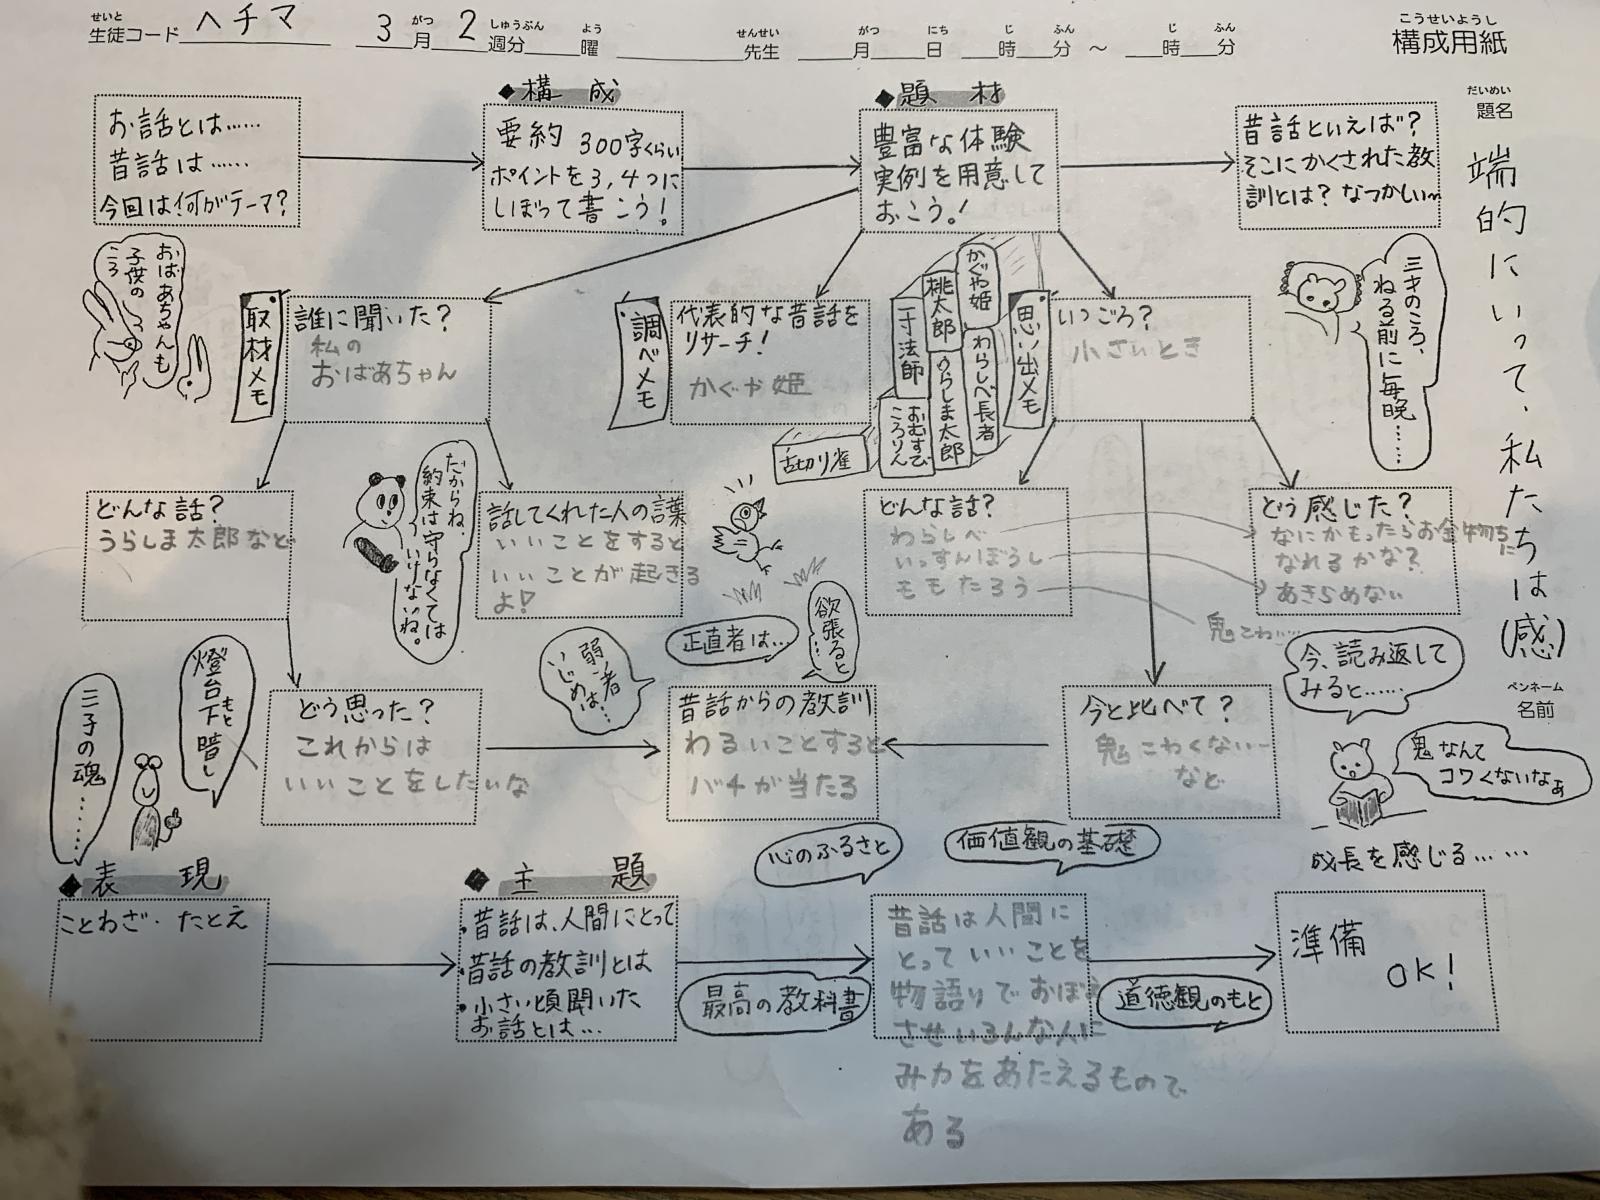 せいと
生徒コード ヘチマ
がつ しゅうぶん よう
3月 2週分 曜
せんせい
先生
がつ にち じ ふん じ ふん
月 日 時 分 ～ 時 分
こうせいようし
構成用紙
だいめい
題名
端的にいって、私たちは(感)
ペンネーム
名前
お話とは……
昔話は……
今回は何がテーマ?
◆構成
要約 300字くらい
ポイントを3,4つに
しぼって書こう!
◆題材
豊富な体験
実例を用意して
おこう。!
昔話といえば?
そこにかくされた教
訓とは? なつかしい〜
おばあちゃんも
子供の
ころ
取材メモ
誰に聞いた?
私の
おばあちゃん
調べメモ
代表的な昔話を
リサーチ!
かぐや姫
かぐや姫
桃太郎
一寸法師
わらしべ長者
うらしま太郎
おむすび
ころりん
舌切り雀
思い出メモ
いつごろ?
小さいとき
三才のころ、
ねる前に毎晩……
どんな話?
うらしま太郎など
だからね、
約束は守らなくては
いけないね。
話してくれた人の言葉
いいことをすると
いいことが起きる
よ!
どんな話?
わらしべ
いっすんぼうし
ももたろう
どう感じた?
なにかもったらお金物ちに
なれるかな?
あきらめない
鬼こわい…
正直者は…
欲張ると
…
弱い者
いじめは…
今、読み返して
みると……
三子の魂……
燈台下暗し
もと
どう思った?
これからは
いいことをしたいな
昔話からの教訓
わるいことすると
バチが当たる
今と比べて?
鬼こわくないー
など
鬼なんて
コワくないなぁ
成長を感じる……
心のふるさと
価値観の基礎
◆表現
ことわざ・たとえ
◆主題
・昔話は、人間にとって
・昔話の教訓とは
・小さい頃聞いた
お話とは…
最高の教科書
昔話は人間に
とっていいことを
物語りでおぼえ
させいろんな人に
みカをあたえるもので
ある
道徳観のもと
準備
OK!